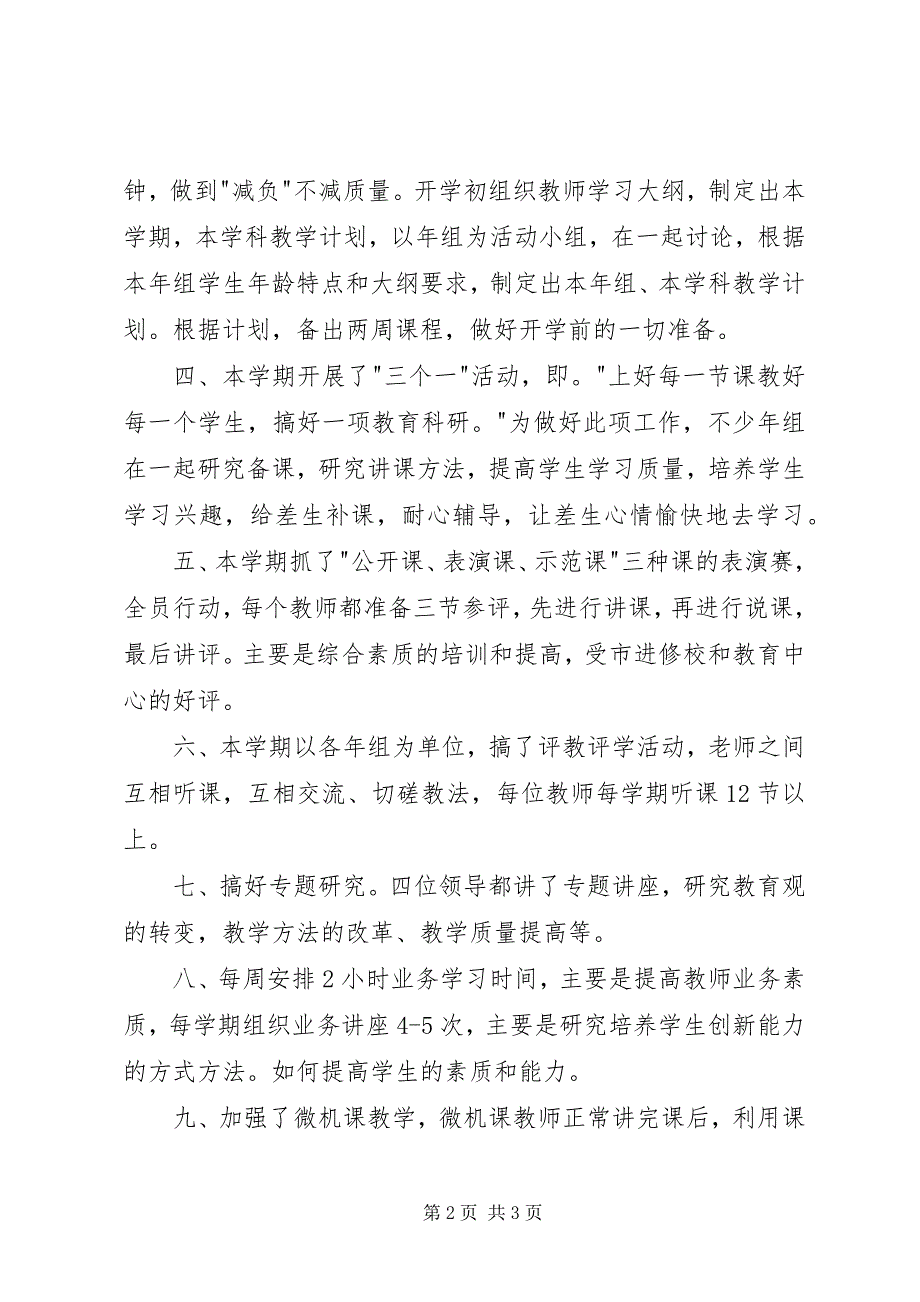 钟，做到"减负"不减质量。开学初组织教师学习大纲，制定出本
学期，本学科教学计划，以年组为活动小组，在一起讨论，根据
本年组学生年龄特点和大纲要求，制定出本年组、本学科教学计
划。根据计划，备出两周课程，做好开学前的一切准备。
四、本学期开展了"三个一"活动，即。"上好每一节课教好
每一个学生，搞好一项教育科研。"为做好此项工作，不少年组
在一起研究备课，研究讲课方法，提高学生学习质量，培养学生
学习兴趣，给差生补课，耐心辅导，让差生心情愉快地去学习。
五、本学期抓了"公开课、表演课、示范课"三种课的表演赛，
全员行动，每个教师都准备三节参评，先进行讲课，再进行说课，
最后讲评。主要是综合素质的培训和提高，受市进修校和教育中
心的好评。
六、本学期以各年组为单位，搞了评教评学活动，老师之间
互相听课，互相交流、切磋教法，每位教师每学期听课12节以
上。
七、搞好专题研究。四位领导都讲了专题讲座，研究教育观
的转变，教学方法的改革、教学质量提高等。
八、每周安排2小时业务学习时间，主要是提高教师业务素
质，每学期组织业务讲座4-5次，主要是研究培养学生创新能力
的方式方法。如何提高学生的素质和能力。
九、加强了微机课教学，微机课教师正常讲完课后，利用课
第2页 共3页